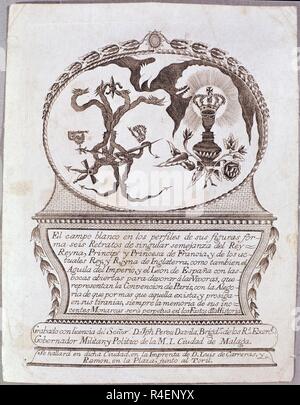 El campo blanco en los perfiles de sus figuras for
ma seis Retratos de singular semejanza del Rey
Reyna, Principe y Princesa de Francia, y de los ac
tuales Rey, y Reyna de Inglaterra, como tambien el
Aguila del Imperio, y el Leon de España con las
bocas abiertas para devorar las Vivoras, que
representan la Convencion de Paris, con la Alego
ria de que por mas que aquella exista, y prosiga
en sus tiranias, siempre la memoria de sus ino
centes Monarcas será perpetua en los Fastos de la Historia.
Grabado con licencia del Señor D. Jph. Perez Davila, Brigad. de los R. Exerc.
Gobernador Militar y Politico de la M. I. Ciudad de Malaga.
Se hallará en dicha Ciudad en la Imprenta de D. Luis de Carreras, y
Ramon, en la Plaza, junto al Toril.
alamy
Image ID: R4ENYX
www.alamy.com